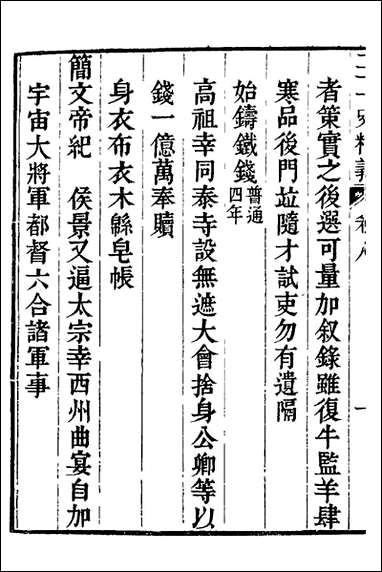 者策實之後選可量加叙錄雖復牛監羊肆
寒品後門竝隨才試吏勿有遺隔
始鑄鐵錢普通四年
高祖幸同泰寺設無遮大會捨身公卿等以
錢一億萬奉贖
身衣布衣木緜皂帳
簡文帝紀　侯景又逼太宗幸西州曲宴自加
宇宙大將軍都督六合諸軍事